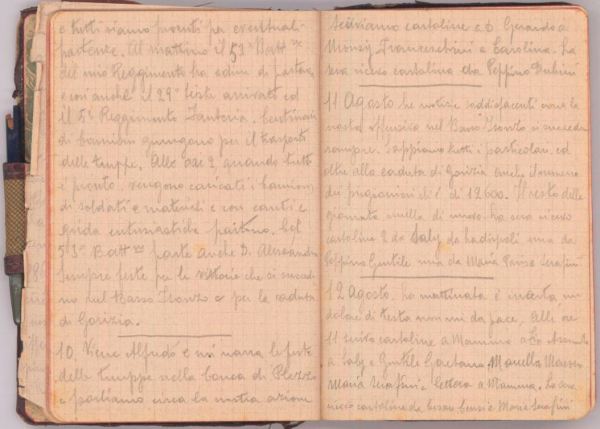 e tutti siamo pronti per eventuali
partenze. Al mattino il 53° Batt.ne
del mio Reggimento ha ordine di partenza
e così anche il 29° testé arrivato ed
il 5° Reggimento Fanteria. Centinaia
di camion giungono per il trasporto
delle truppe. Alle ore 2 quando tutti
è pronto, vengono caricati i camions
di soldati e materiali e con canti e
grida entusiastiche partono. Col
53° Batt.ne parte anche D. Alessandro
Sempre feste per le vittorie che si succedo
no nel Basso Isonzo e per la caduta
di Gorizia.
10. Viene Alfredo e mi narra le feste
delle truppe nella conca di Plezzo
e parliamo circa la nostra azione
Scriviamo cartoline a D. Gerardo a
Franceschini e Carolina. La
sera ricevo cartolina da Peppino
11 Agosto. Le notizie soddisfacenti circa la
nostra offensiva nel Basso Isonzo si succedono
sempre. Sappiamo tutti i particolari ed
oltre alla caduta di Gorizia anche il numero
dei prigionieri che è di 12600. Il resto della
giornata nulla di nuovo. La sera ricevo
cartoline 2 da Saly da Ladispoli una da
Peppino Gentile una da Maria Luisa Serafini
12 Agosto. La mattinata è incerta un
dolore di testa non mi da pace. Alle ore
11 scrivo cartoline a Mammina a
a Saly e Gentile Gaetano, Marello Maresca
Maria Serafini e lettera a Mamma. La sera
ricevo cartoline da e Maria Serafini